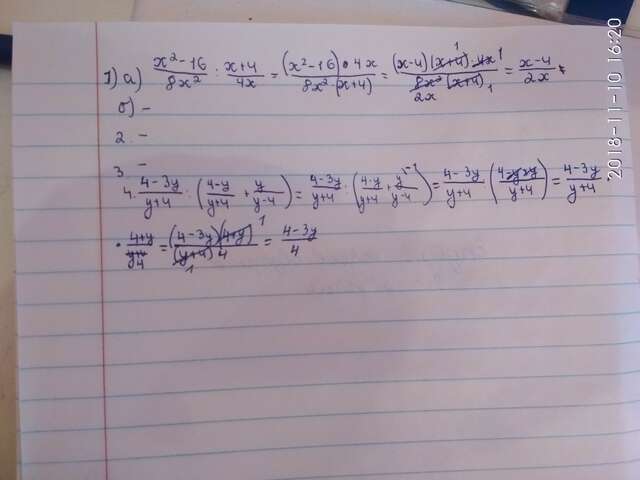 1) а) (x²-16)/(8x²) : (x+4)/(4x) = ((x²-16)·4x)/(8x²·(x+4)) = ((x-4)(x+4)·4x)/(8x²(x+4)) = (x-4)/(2x)
1 1 2x 1
б) -
2. -
3. -
4. (4-3y)/(y+4) : ((4-y)/(y+4) + y/(y-4)) = (4-3y)/(y+4) : ((4-y)/(y+4) + y/(y-4)) = (4-3y)/(y+4) ((4-y+y)/(y+4)) = (4-3y)/(y+4) ·
· (4+y)/4 = ((4-3y)(4+y))/((y+4)4) = (4-3y)/4
1 1
2018-11-10 16:20